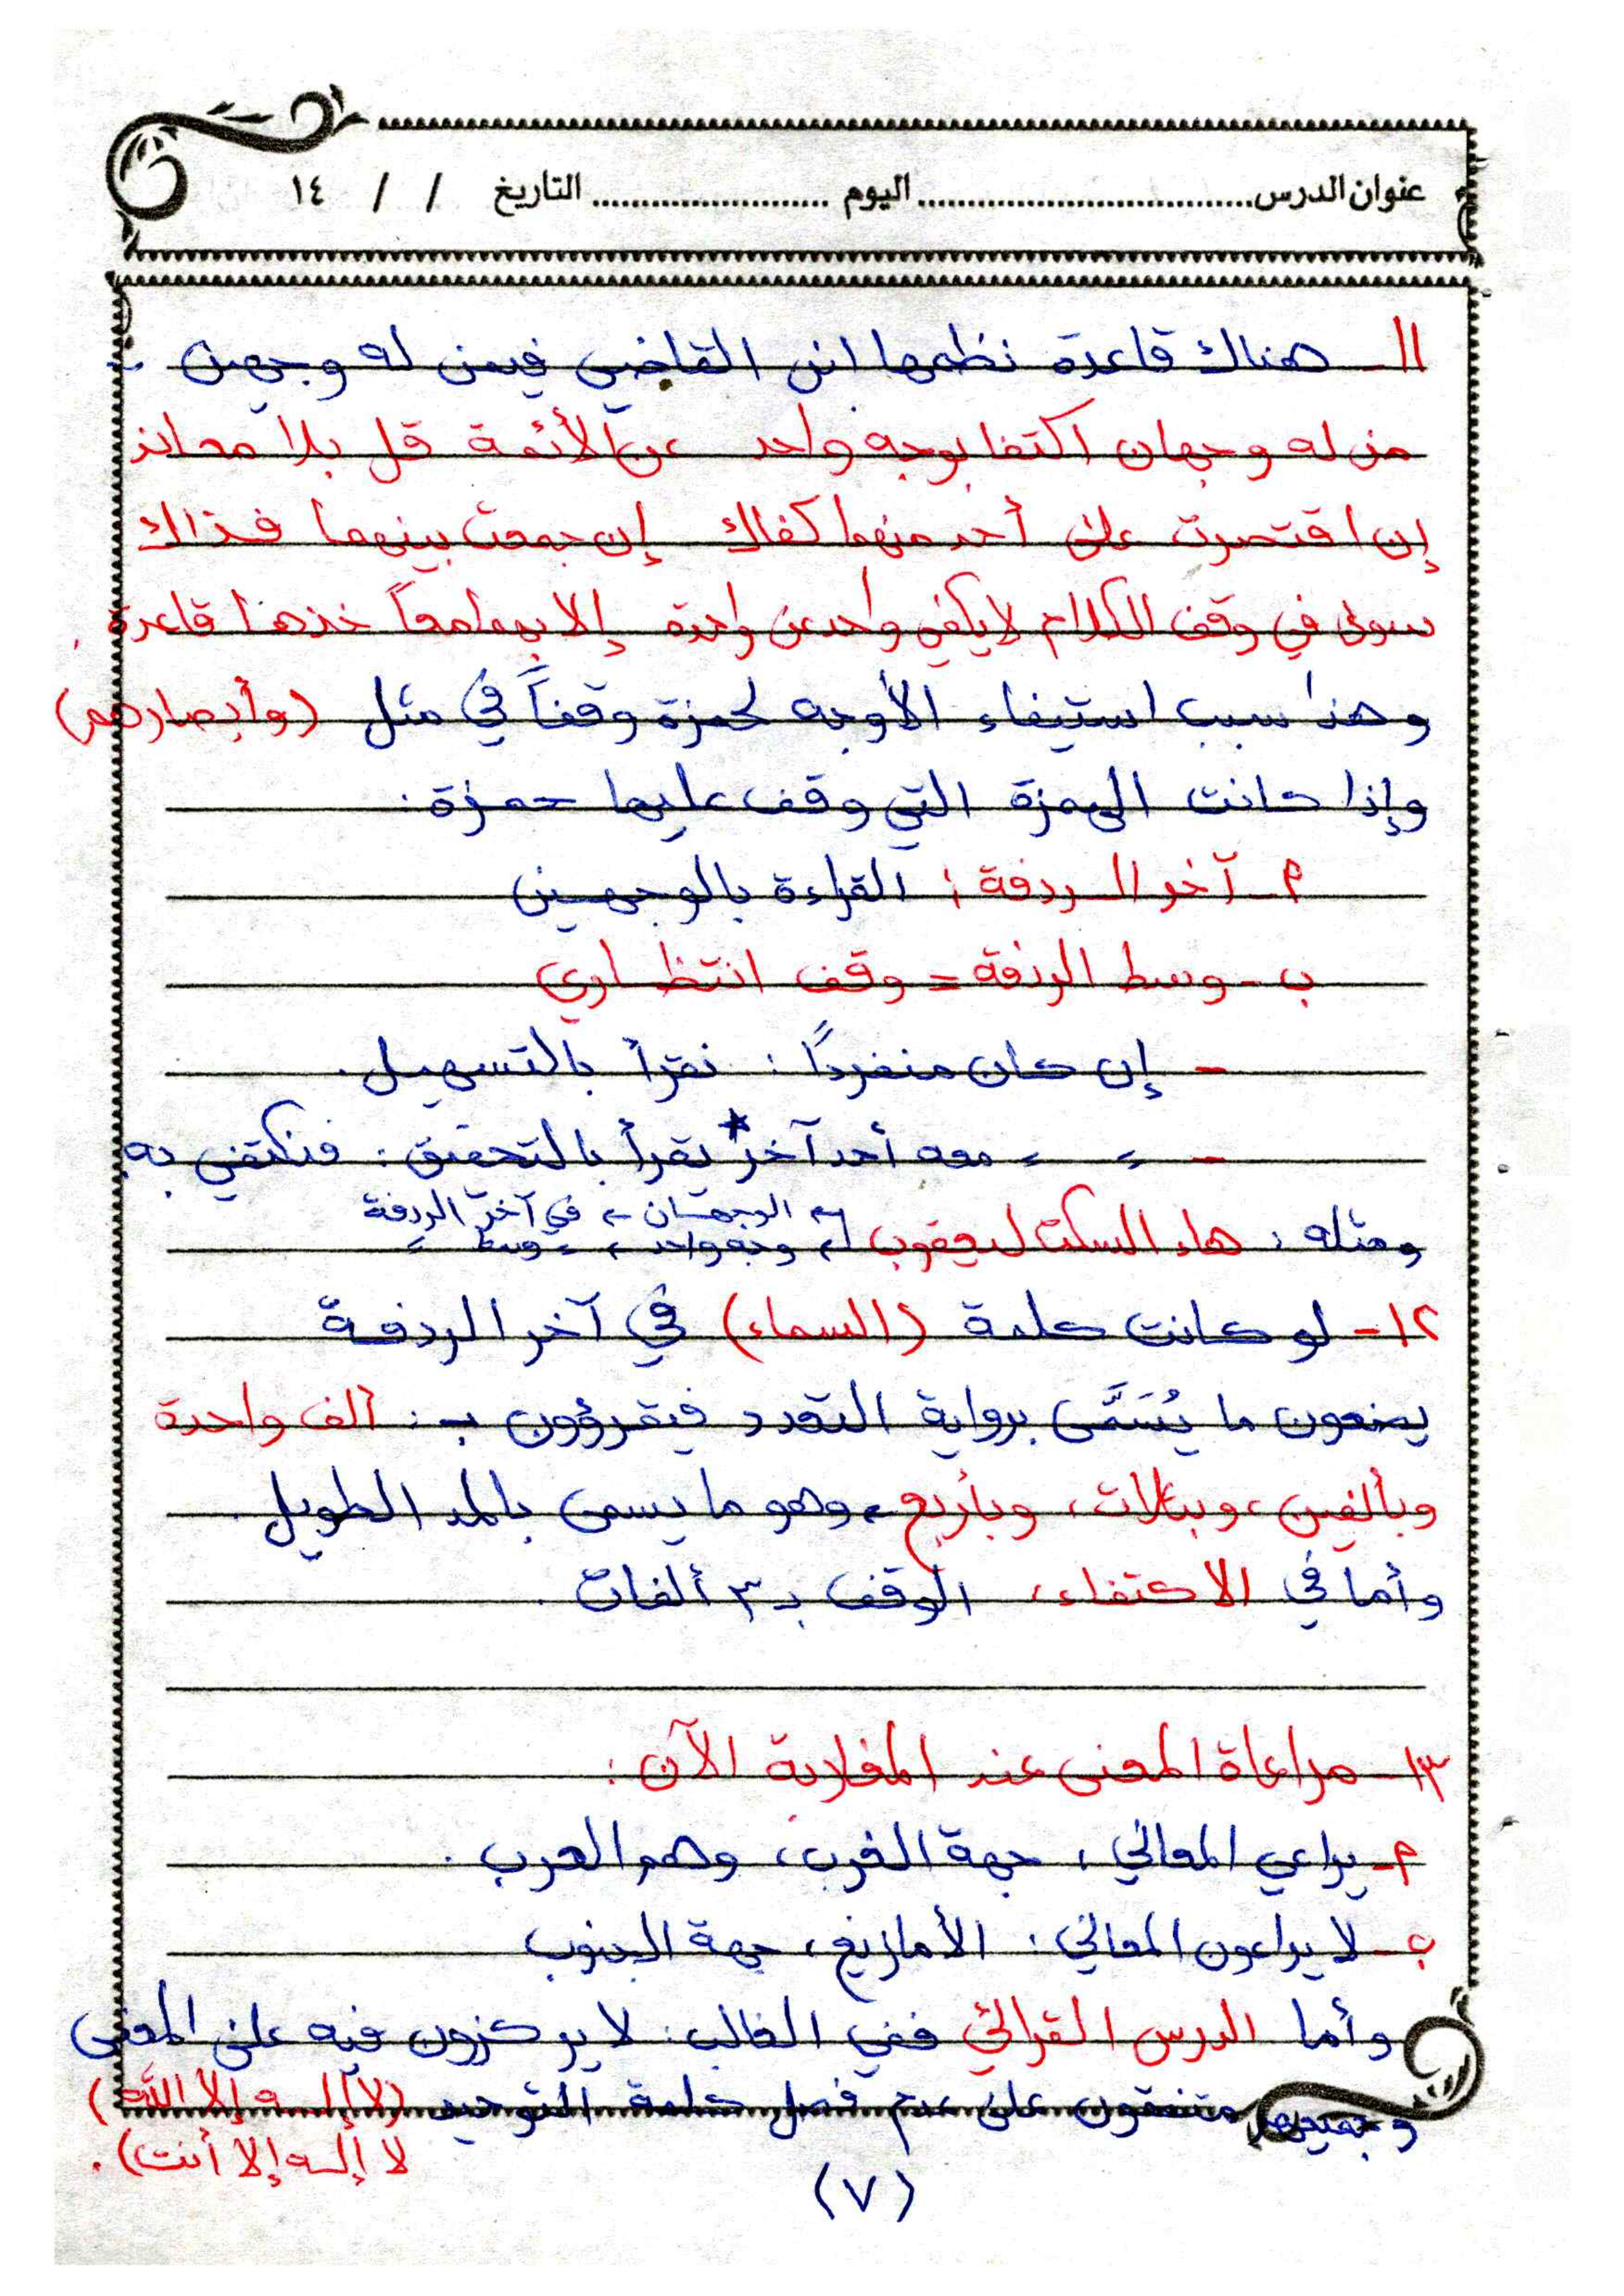 عنوان الدرس................................اليوم .......................التاريخ / / ١٤
١١- هناك قاعدة نظمها ابن القاضي فيمن له وجهين :
من له وجهان اكتفا بوجه واحد عن الأئمة قل بلا معاند
إن اقتصرت على أحد منهما كفاك إن جمعت بينهما فذاك
سوى في وقف الكلام لا يكفي واحد عن واحدة إلا بهما معاً خذها قاعدة .
وهذا سبب استيفاء الأوجه لحمزة وقفاً في مثل (وأبصارهم)
وإذا كانت الهمزة التي وقف عليها حمزة :
أ- آخر الردفة : القراءة بالوجهين
ب- وسط الردفة = وقف انتظاري
- إن كان منفرداً : نقرأ بالتسهيل .
- 〃 〃 معه أحد آخر* يقرأ بالتحقيق : فنكتفي به .
ومثله : هاء السكت ليعقوب
← الوجهان ← في آخر الردفة
← وجه واحد 〃 〃 وسط 〃
١٢- لو كانت كلمة (السماء) في آخر الردفة
يضعون ما يُسَمَّى برواية التعدد فيقرؤون بـ : ألف واحدة
وبألفين ، وبثلاث ، وبأربع ، وهو ما يسمى بالمد الطويل .
وأما في الاكتفاء ، الوقف بـ ٣ ألفات .
١٣- مراعاة المعنى عند المغاربة الآن :
أ- يراعي المعاني ، جهة الغرب ، وهم العرب .
ب- لا يراعون المعاني : الأمازيغ ، جهة الجنوب
وأما الدرس القرائي ففي الغالب : لا يركزون فيه على المعنى
وجميعهم متفقون على عدم فصل كلمة التوحيد (لا إله إلا الله)
لا إله إلا أنت) .
(٧)